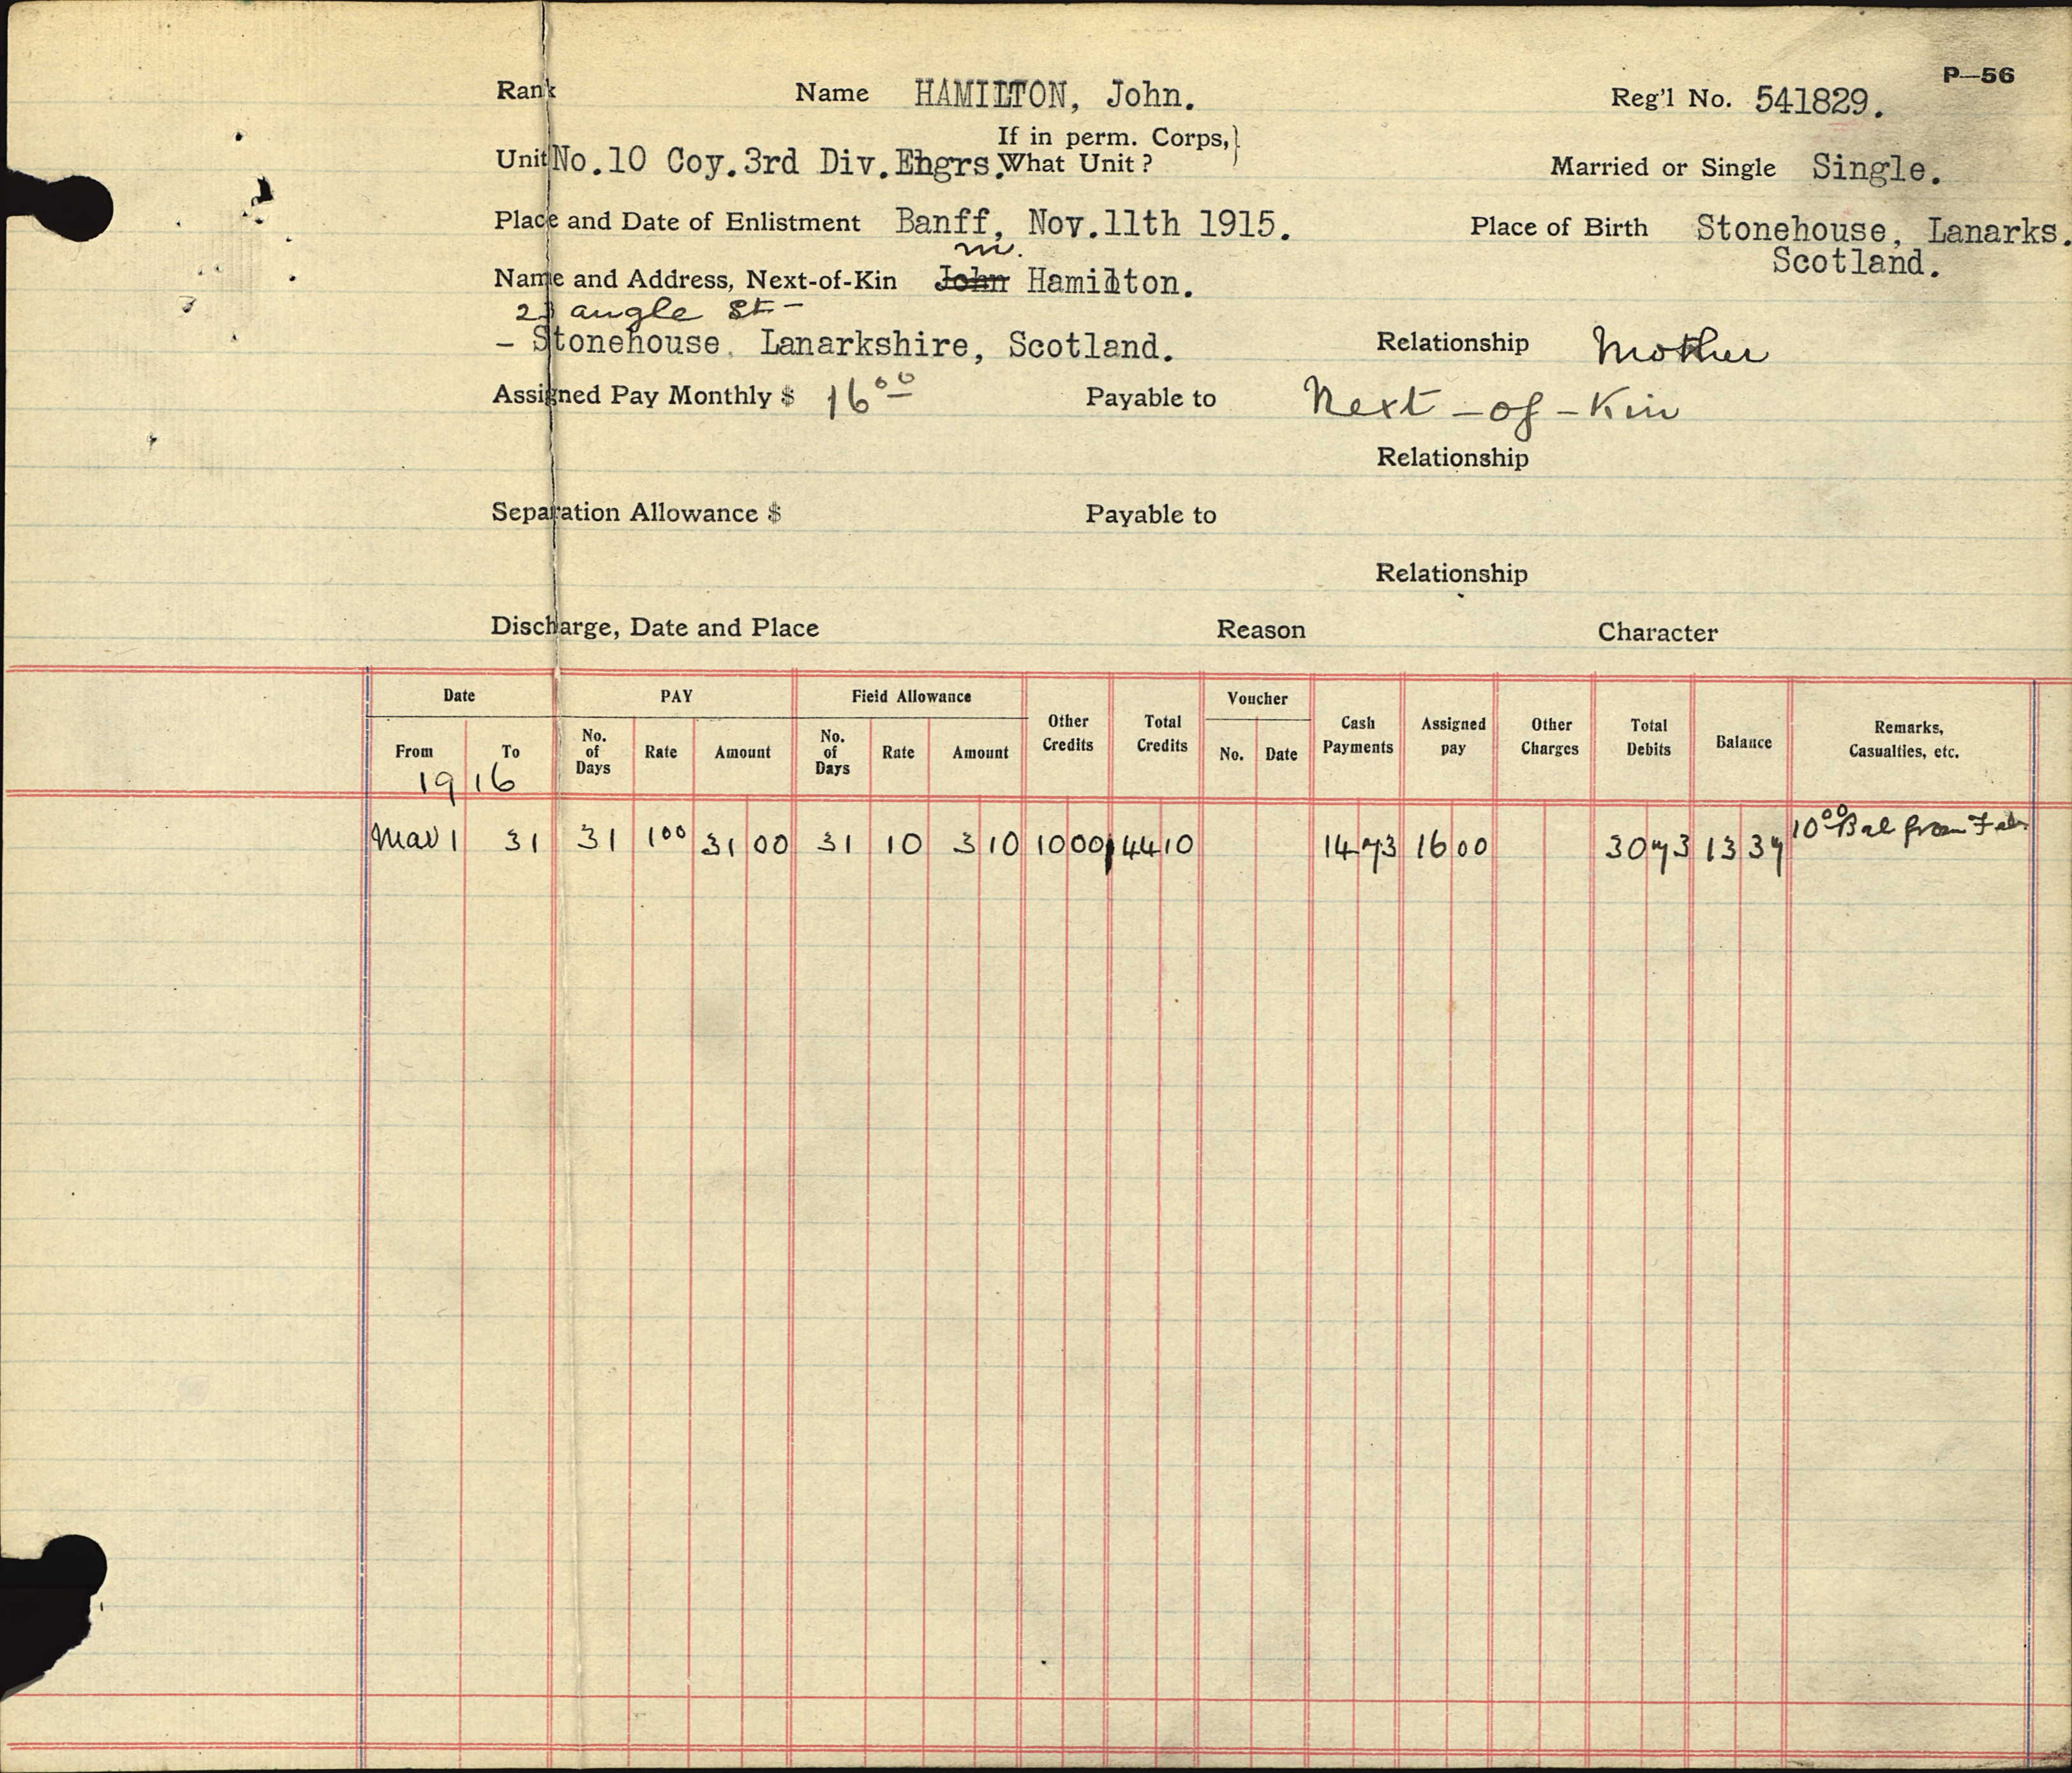 P—56
Rank Name HAMILTON, John. Reg'l No. 541829.
If in perm. Corps,}
Unit No.10 Coy.3rd Div.Engrs. What Unit? Married or Single Single.
Place and Date of Enlistment Banff, Nov.11th 1915. Place of Birth Stonehouse, Lanarks.
Scotland.
m.
Name and Address, Next-of-Kin John Hamilton.
angle St –
– Stonehouse, Lanarkshire, Scotland. Relationship Mother
Assigned Pay Monthly $ 16 00 Payable to Next-of-Kin
Relationship
Separation Allowance $ Payable to
Relationship
Discharge, Date and Place Reason Character
Date PAY Field Allowance Other Credits Total Credits Voucher Cash Payments Assigned pay Other Charges Total Debits Balance Remarks, Casualties, etc.
From To No. of Days Rate Amount No. of Days Rate Amount No. Date
1916
Mar 1 31 31 1 00 31 00 31 10 3 10 10 00 44 10 14 73 16 00 30 73 13 37 10 00 Bal from Feb